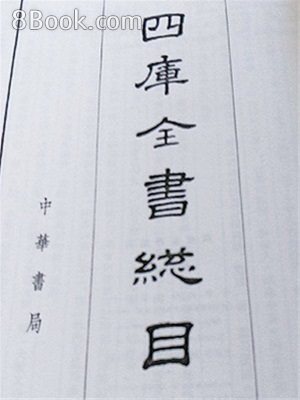 8Book.com
四庫全書総目
中華書局